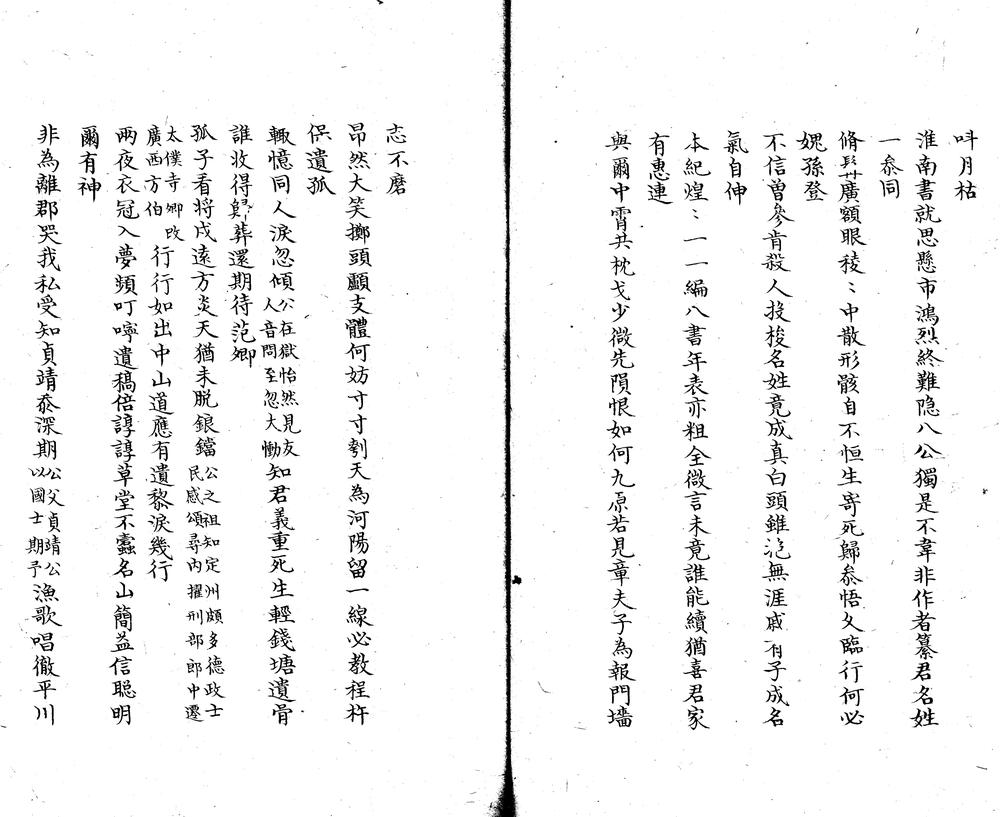 呌月枯
淮南書就思懸市鴻烈終難隐八公獨是不韋非作者纂君名姓
一叅同
脩髯廣額眼稜〻中散形骸自不恒生寄死歸叅悟久臨行何必
媿孫登
不信曾參肯殺人投梭名姓竟成真白頭錐迄無涯戚有子成名
氣自伸
本紀煌〻一一編八書年表亦粗全微言未竟誰能續猶喜君家
有惠連
與爾中霄共枕戈少微先隕恨如何九原若見章夫子為報門墻
志不磨
昂然大笑擲頭顱支體何妨寸寸刳天為河陽留一線必教程杵
保遺孤
輙憶同人淚忽傾公在獄怡然見友人音問至忽大慟知君義重死生輕錢塘遺骨
誰收得歸葬還期待范卿
孤子看將戍遠方炎天猶未脫鋃鐺公之祖知定洲頗多德政士民感頌尋內擢刑部郎中遷
太僕寺卿改廣西方伯行行如出中山道應有遺黎淚幾行
兩夜衣冠入夢頻叮嚀遺稿倍諄諄草堂不蠹名山簡益信聰明
爾有神
非為離郡哭我私受知貞靖忝深期公父貞靖公以國士期予漁歌唱徹平川